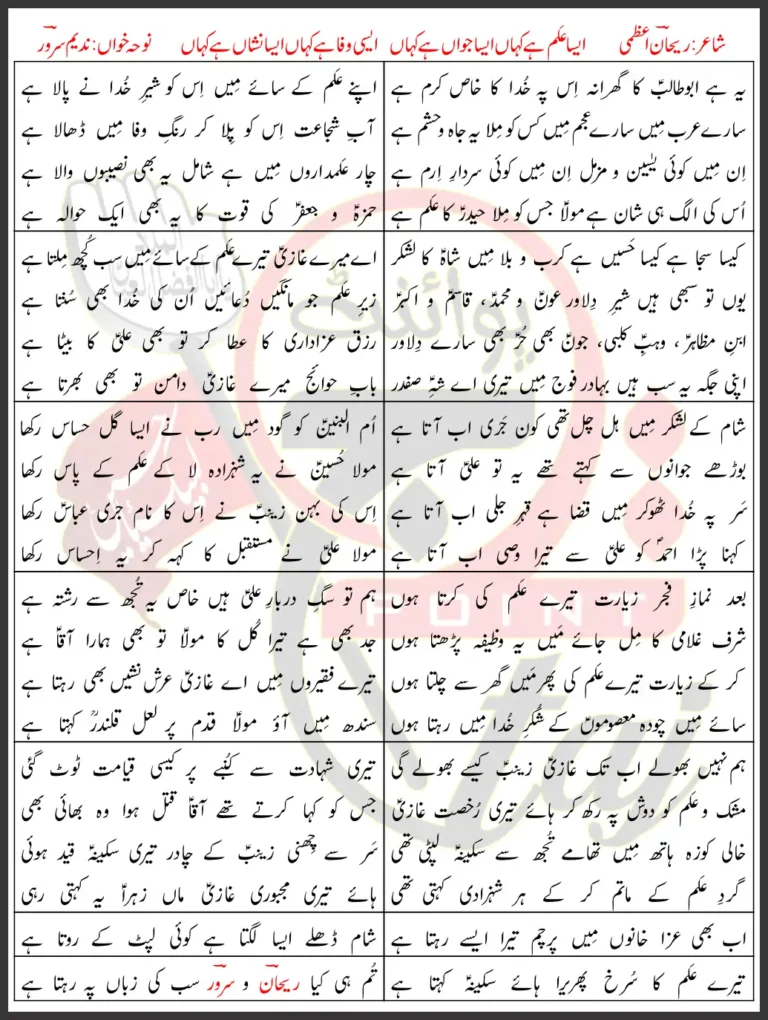 شاعر: ریحان اعظمی ایسا علم ہے کہاں ایسا جواں ہے کہاں ایسی وفا ہے کہاں ایسا نشاں ہے کہاں نوحہ خواں: ندیم سرور
یہ ہے ابوطالبؑ کا گھرانہ اِس پہ خُدا کا خاص کرم ہے
سارے عرب میں سارے عجم میں کس کو مِلا یہ جاہ و حشم ہے
اِن میں کوئی یٰسین و مزمل اِن میں کوئی سردارِ اِرم ہے
اُس کی الگ ہی شان ہے مولاؑ جس کو مِلا حیدرؑ کا علم ہے
اپنے علم کے سائے میں اِس کو شیرِ خُدا نے پالا ہے
آبِ شجاعت اِس کو پِلا کر رنگِ وفا میں ڈھالا ہے
چار علمداروں میں ہے شامل یہ بھی نصیبوں والا ہے
حمزہؑ و جعفرؑ کی قوت کا یہ بھی ایک حوالہ ہے
کیسا سجا ہے کیسا حَسیں ہے کرب و بلا میں شاہؑ کا لشکر
یوں تو سبھی ہیں شیرِ دِلاور عونؑ و محمدؑ، قاسمؑ و اکبرؑ
ابنِ مظاہرؑ، وہبِؑ کلبی، جونؑ بھی حُرؑ بھی سارے دِلاور
اپنی جگہ یہ سب ہیں بہادر فوج میں تیری اے شہِؑ صفدر
اے میرے غازیؑ تیرے علم کے سائے میں سب کُچھ مِلتا ہے
زیرِ علم جو مانگیں دُعائیں اُن کی خُدا بھی سُنتا ہے
رزق عزاداری کا عطا کر تو بھی علیؑ کا بیٹا ہے
بابِ حوائج میرے غازیؑ دامن تو بھی بھرتا ہے
شام کے لشکر میں ہل چل تھی کون جَری اب آتا ہے
بوڑھے جوانوں سے کہتے تھے یہ تو علیؑ آتا ہے
سَر پہ خُدا ٹھوکر میں قضا ہے قہرِ جلی اب آتا ہے
کہنا پڑا احمدؐ کو علیؑ سے تیرا وصی اب آتا ہے
اُم البنینؑ کو گود میں رب نے ایسا گل حساس رکھا
مولا حُسینؑ نے یہ شہزادہ لا کے علم کے پاس رکھا
اِس کی بہن زینبؑ نے اِس کا نام جری عباسؑ رکھا
مولا علیؑ نے مستقبل کا کہہ کر یہ اِحساس رکھا
بعد نمازِ فجر زیارت تیرے علم کی کرتا ہوں
شرف غلامی کا مِل جائے مَیں یہ وظیفہ پڑھتا ہوں
کر کے زیارت تیرے علم کی پھر مَیں گھر سے چلتا ہوں
سائے میں چودہ معصوموںؑ کے شُکرِ خُدا میں رہتا ہوں
ہم تو سگِ دربارِ علیؑ ہیں خاص یہ تُجھ سے رشتہ ہے
جد بھی ہے تیرا کُل کا مولاؑ تو بھی ہمارا آقاؑ ہے
تیرے فقیروں میں اے غازیؑ عرش نشیں بھی رہتا ہے
سندھ میں آؤ مولاؑ قدم پر لعل قلندرؒ کہتا ہے
ہم نہیں بھولے اب تک غازیؑ زینبؑ کیسے بھولے گی
مشک و علم کو دوش پہ رکھ کر ہائے تیری رُخصت غازیؑ
خالی کوزہ ہاتھ میں تھامے تُجھ سے سکینہؑ لپٹی تھی
گردِ علم کے ماتم کر کے ہر شہزادی کہتی تھی
تیری شہادت سے کُنبے پر کیسی قیامت ٹوٹ گئی
جس کو کہا کرتے تھے آقاؑ قتل ہوا وہ بھائی بھی
سَر سے چِھنی زینبؑ کے چادر تیری سکینہؑ قید ہوئی
ہائے تیری مجبوری غازیؑ ماں زہراؑ یہ کہتی رہی
اب بھی عزا خانوں میں پرچم تیرا ایسے رہتا ہے
شام ڈھلے ایسا لگتا ہے کوئی لپٹ کے روتا ہے
تیرے علم کا سُرخ پھریرا ہائے سکینہؑ کہتا ہے
تُم ہی کیا ریحانؔ و سرورؔ سب کی زباں پہ رہتا ہے
پوائنٹ
POINT
taj